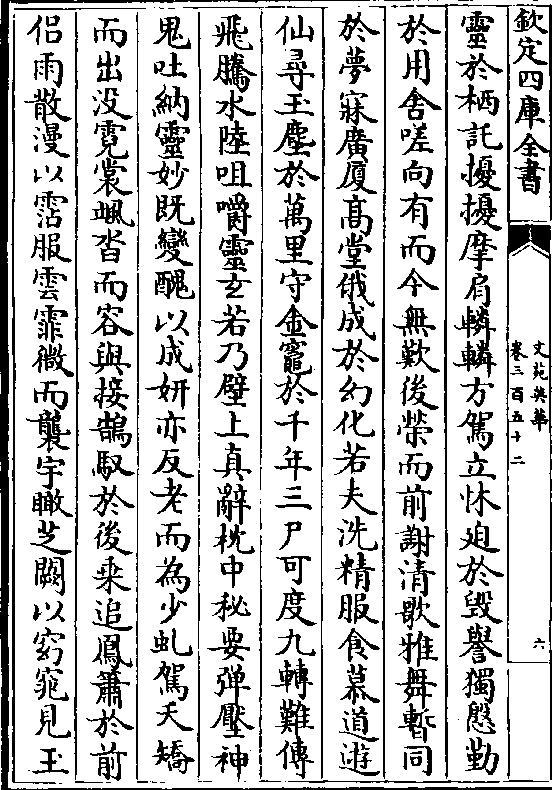 欽定四庫全書
文苑英華
卷三百五十二
六
靈於栖託擾擾摩肩轔轔方駕立怵迫於毀譽獨慇勤
於用舍嗟向有而今無歎後榮而前謝清歌雅舞暫同
於夢寐廣厦高堂俄成於幻化若夫洗精服食慕道逰
仙尋玉塵於萬里守金竈於千年三尸可度九轉難傳
飛騰水陸咀嚼靈𤣥若乃壁上真辭枕中秘要弹壓神
鬼吐納靈妙既變醜以成妍亦反老而為少虬駕夭矯
而出没霓裳颯沓而容與接鵠馭於後乗追鳳簫於前
侣雨散漫以霑服雲霏微而襲宇瞰芝闕以窈窕見玉